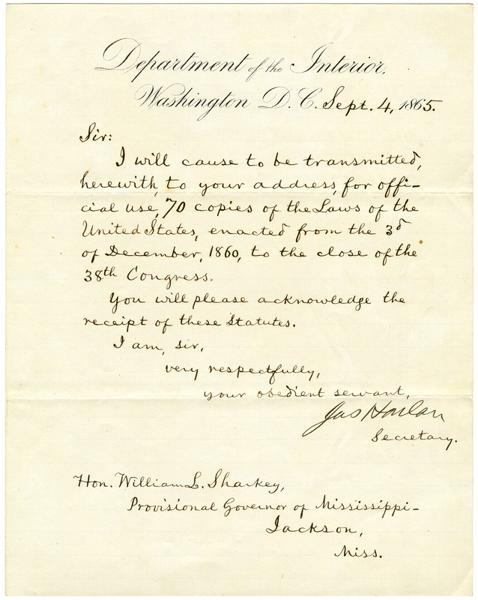 Department of the Interior,
Washington D. C. Sept. 4, 1865.
Sir:
I will cause to be transmitted,
herewith to your address, for offi-
cial use, 70 copies of the Laws of the
United States, enacted from the 3d
of December, 1860, to the close of the
38th Congress.
You will please acknowledge the
receipt of these Statutes.
I am, sir,
very respectfully,
your obedient servant,
Jas Harlan
Secretary.
Hon. William L. Sharkey,
Provisional Governor of Mississippi-
Jackson,
Miss.